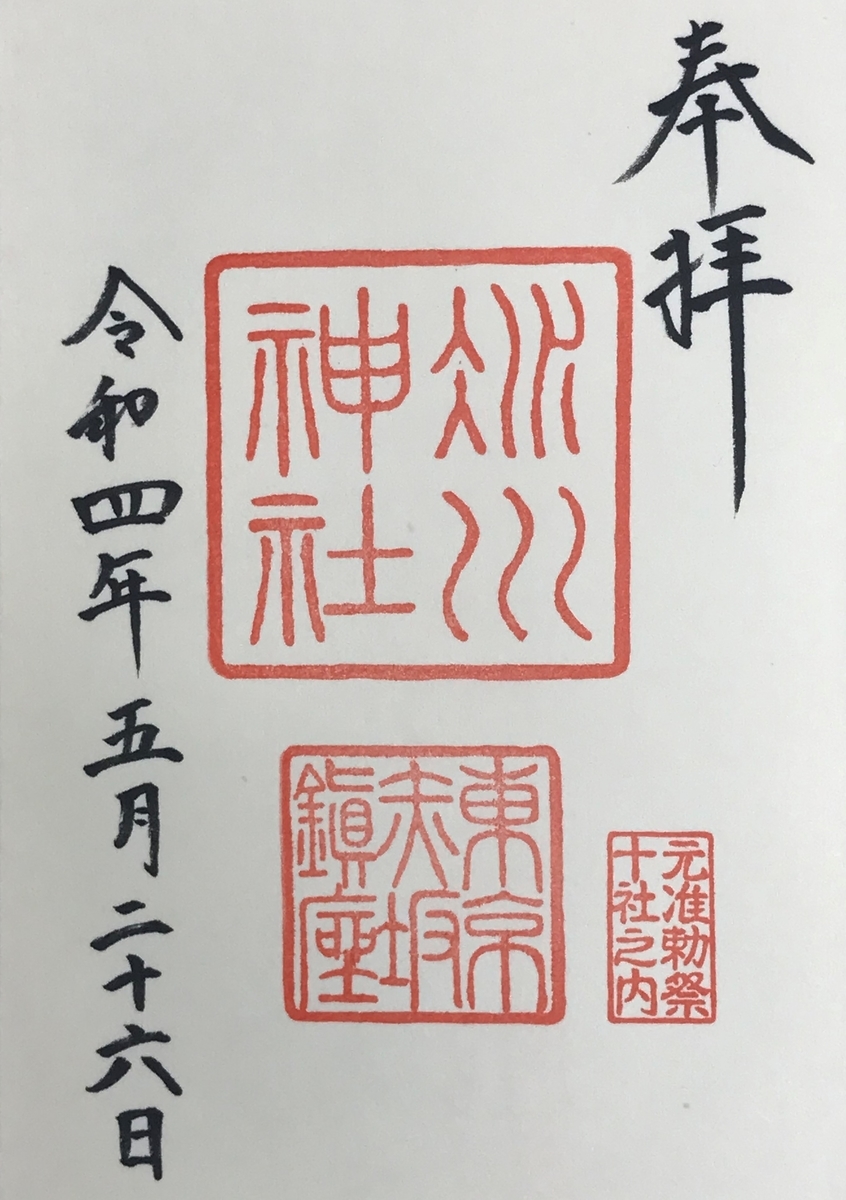 奉拝
冰川
神社
東京
赤坂
鎭座
元准勅祭
十社之内
令和四年五月二十六日